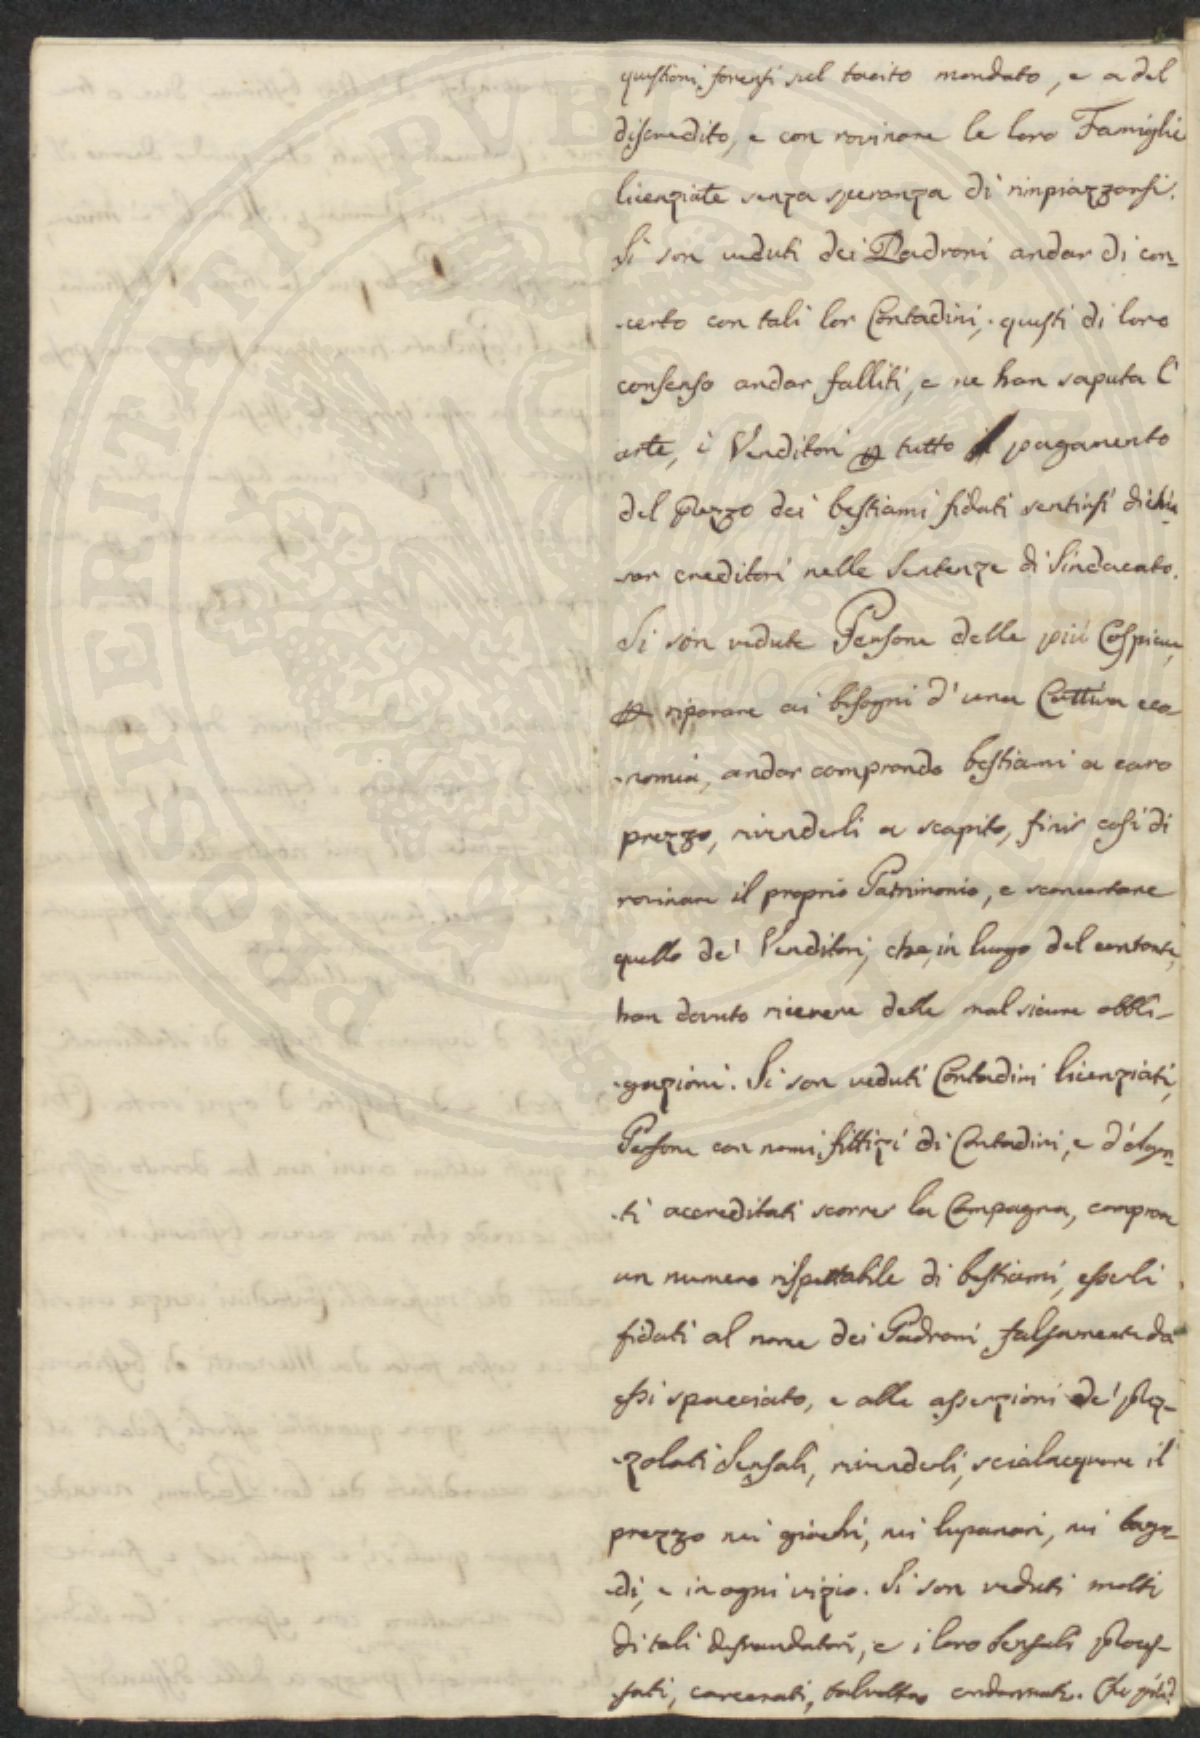 questioni forensi sul tacito mandato, e a del
discredito, e con rovinare le loro Famiglie
licenziate senza speranza di rimpiazzarsi.
Si son veduti dei Padroni andar di con-
-certo con tali lor Contadini, questi di loro
consenso andar falliti, e ne han saputa l'
arte, i Venditori p tutto il pagamento
del prezzo dei bestiami fidati sentirsi dichia
rar creditori nelle Sentenze di Sindacato.
Si son vedute Persone delle più Cospicue,
p riparare ai bisogni d'una Cattiva eco-
-nomia, andar comprando bestiami a caro
prezzo, rivenderli a scapito, finir così di
rovinare il proprio Patrimonio, e sconcertare
quello de' Venditori, che, in luogo del contante,
han dovuto ricevere delle mal sicure obbli-
-gazioni. Si son veduti Contadini licenziati,
Persone con nomi fittizi di Contadini, e d'Agen-
-ti accreditati scorrer la Campagna, comprare
un numero rispettabile di bestiami, esserli
fidati al nome dei Padroni falsamente da
essi spacciato, e alle asserzioni de' prez-
-zolati Sensali, rivenderli, scialacquare il
prezzo nei giochi, nei lupanari, nei bago-
-di, e in ogni vizio. Si son veduti molti
di tali defraudatori, e i loro Sensali proces-
-sati, carcerati, talvolta condannati. Che